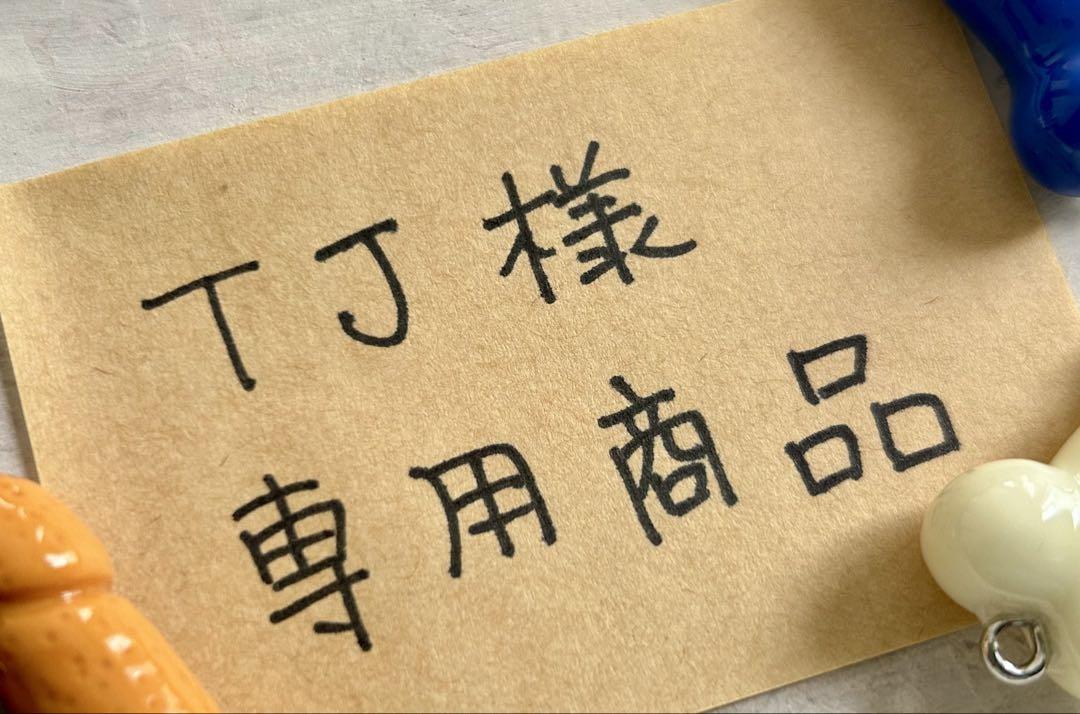 TJ様
専用商品